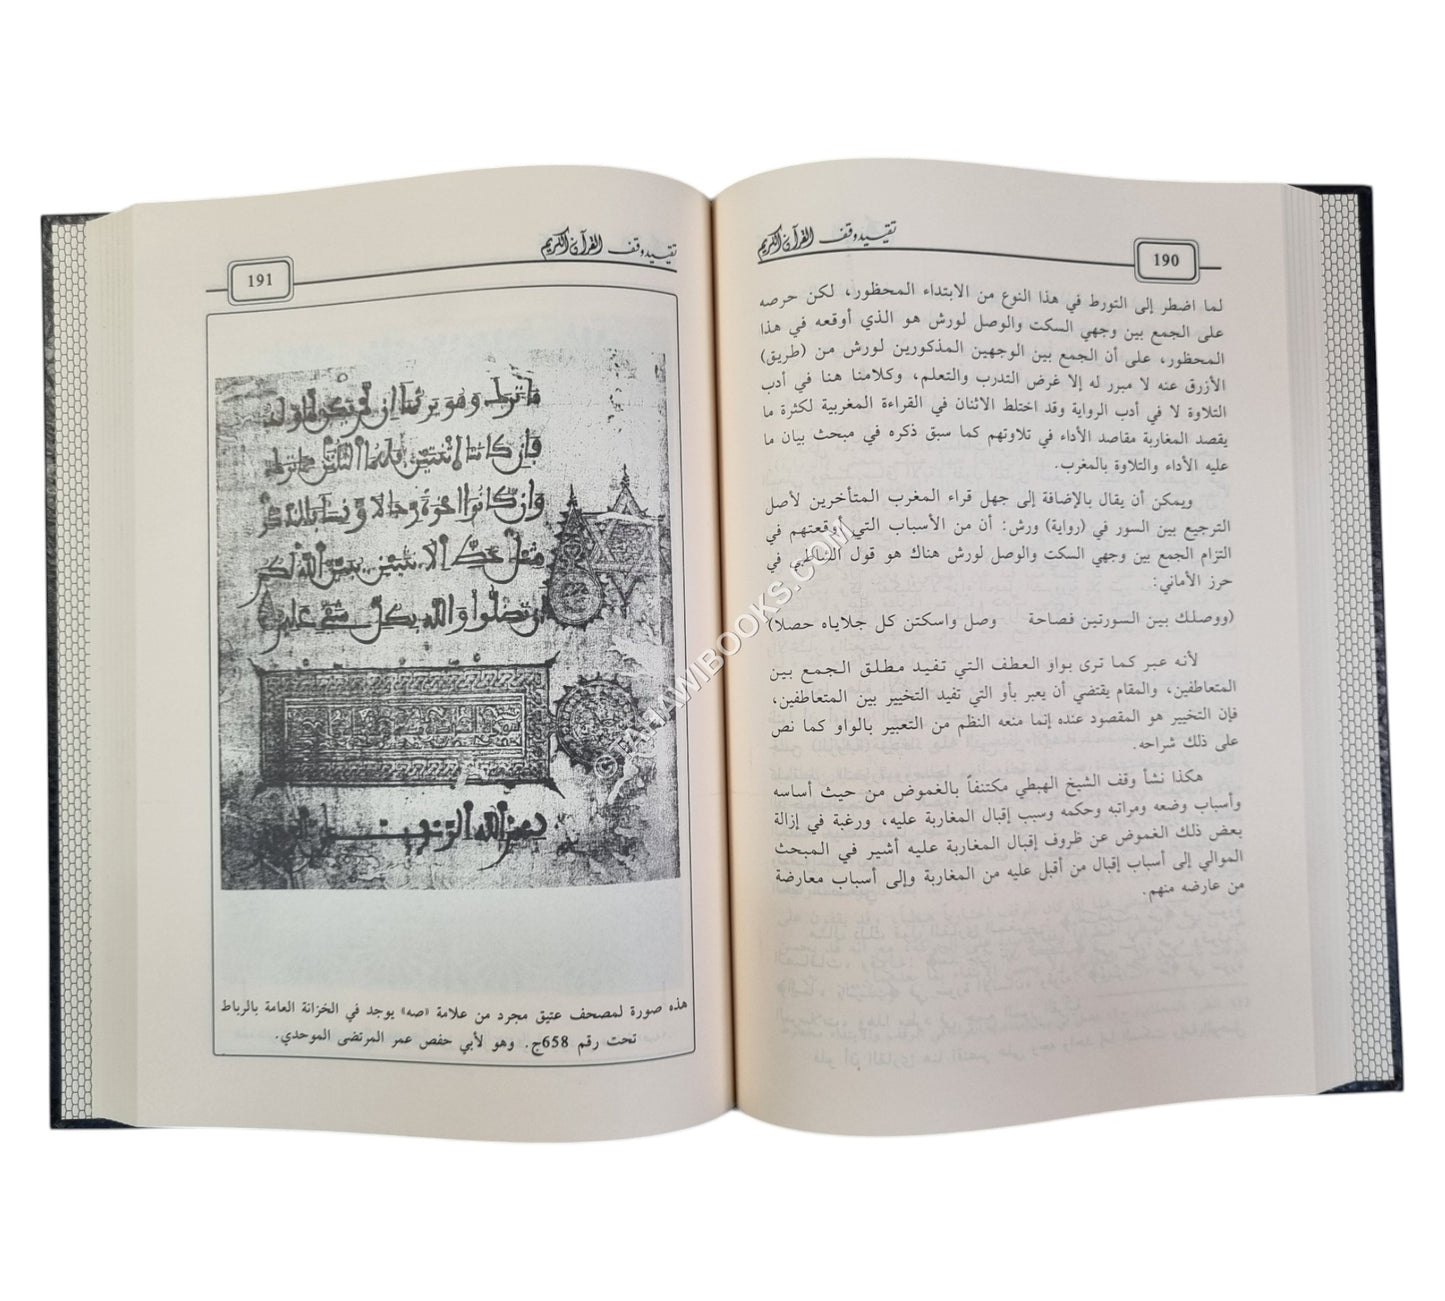 تقييد وقف القرآن الكريم
190
لما اضطر إلى التورط في هذا النوع من الابتداء المحظور، لكن حرصه
على الجمع بين وجهي السكت والوصل لورش هو الذي أوقعه في هذا
المحظور، على أن الجمع بين الوجهين المذكورين لورش من (طريق)
الأزرق عنه لا مبرر له إلا غرض التدرب والتعلم، وكلامنا هنا في أدب
التلاوة لا في أدب الرواية وقد اختلط الاثنان في القراءة المغربية لكثرة ما
يقصد المغاربة مقاصد الأداء في تلاوتهم كما سبق ذكره في مبحث بيان ما
عليه الأداء والتلاوة بالمغرب.
ويمكن أن يقال بالإضافة إلى جهل قراء المغرب المتأخرين لأصل
الترجيع بين السور في (رواية) ورش: أن من الأسباب التي أوقعتهم في
التزام الجمع بين وجهي السكت والوصل لورش هناك هو قول الشاطبي في
حرز الأماني:
(ووصلك بين السورتين فصاحة وصل واسكتن كل جلاياه حصلا)
لأنه عبر كما ترى بواو العطف التي تفيد مطلق الجمع بين
المتعاطفين، والمقام يقتضي أن يعبر بأو التي تفيد التخيير بين المتعاطفين،
فإن التخيير هو المقصود عنده إنما منعه النظم من التعبير بالواو كما نص
على ذلك شراحه.
هكذا نشأ وقف الشيخ الهبطي مكتنفاً بالغموض من حيث أساسه
وأسباب وضعه ومراتبه وحكمه وسبب إقبال المغاربة عليه، ورغبة في إزالة
بعض ذلك الغموض عن ظروف إقبال المغاربة عليه أشير في المبحث
الموالي إلى أسباب إقبال من أقبل عليه من المغاربة وإلى أسباب معارضة
من عارضه منهم.
تقييد وقف القرآن الكريم
191
ما ترك وهو يرثها إن لم يكن لها ولد
فإن كانتا اثنتين فلهما الثلثان مما ترك
وإن كانوا إخوة رجالا ونساء فللذكر
مثل حظ الانثيين يبين الله لكم
أن تضلوا والله بكل شيء عليم
بسم الله الرحمن الرحيم
هذه صورة لمصحف عتيق مجرد من علامة «صه» يوجد في الخزانة العامة بالرباط
تحت رقم 658ج. وهو لأبي حفص عمر المرتضى الموحدي.
©TAHAWIBOOKS.COM